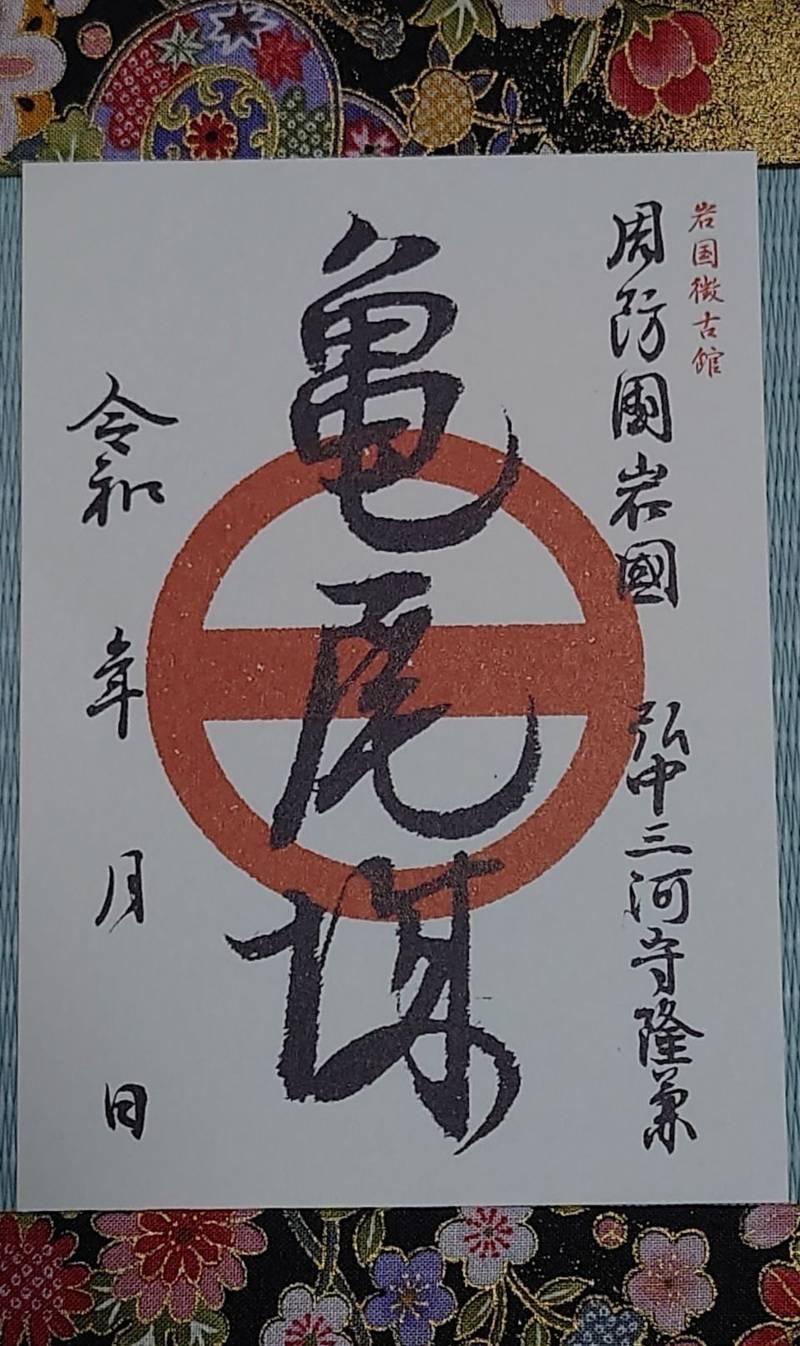 岩国徴古館
周防國岩國 弘中三河守隆兼
亀尾城
令和 年 月 日